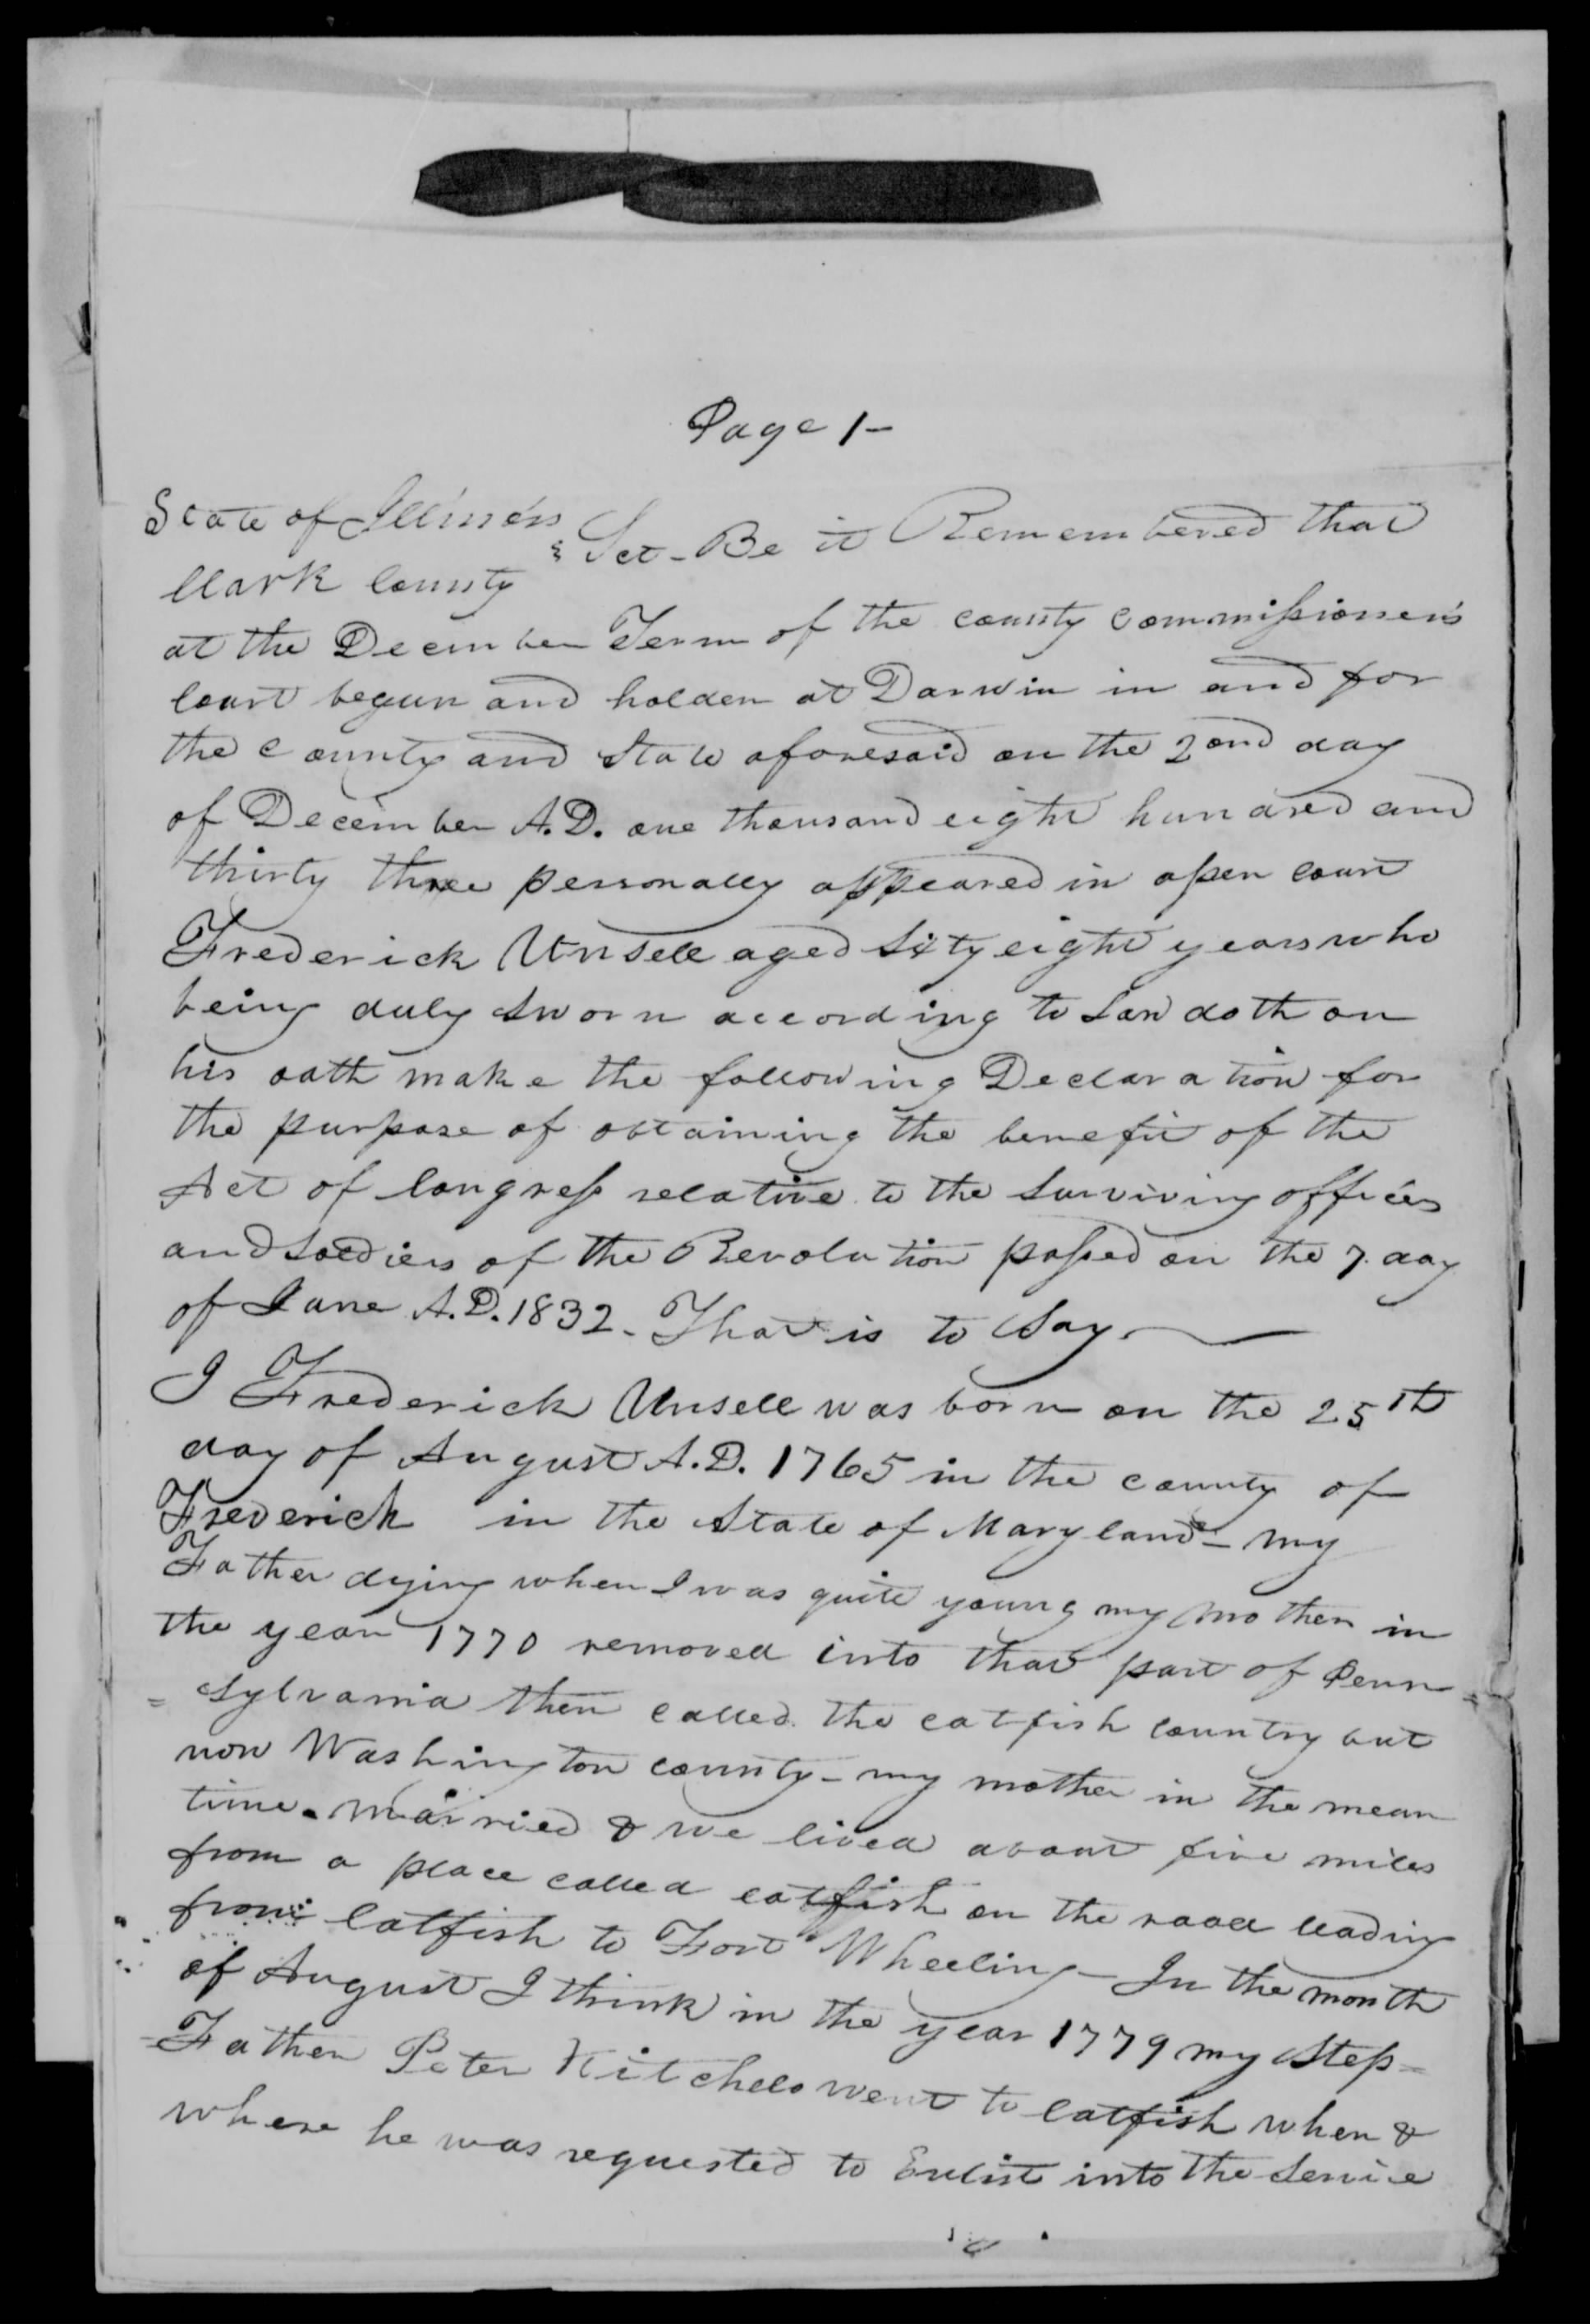 Page 1-
State of Illinois
Clark County } Sct - Be it Remembered that
at the December Term of the county commissioners
Court begun and holden at Darwin in and for
the County and State aforesaid on the 2ond day
of December A.D. one thousand eight hundred and
thirty three personally appeared in open court
Frederick Unsell aged sixty eight years who
being duly sworn according to Law doth on
his oath make the following Declaration for
the purpose of obtaining the benefit of the
Act of Congress relative to the surviving officers
and soldiers of the Revolution passed on the 7. day
of June A.D. 1832. That is to say
I Frederick Unsell was born on the 25th
day of August A.D. 1765 in the county of
Frederick in the State of Maryland - my
Father dying when I was quite young my mother in
the year 1770 removed into that part of Penn=
=sylvania then called the catfish country but
now Washington county - my mother in the mean
time married & we lived about five miles
from a place called catfish on the road leading
from Catfish to Fort Wheeling - In the month
of August I think in the year 1779 my step=
=Father Peter Kitchels went to Catfish when &
where he was requested to Enlist into the service